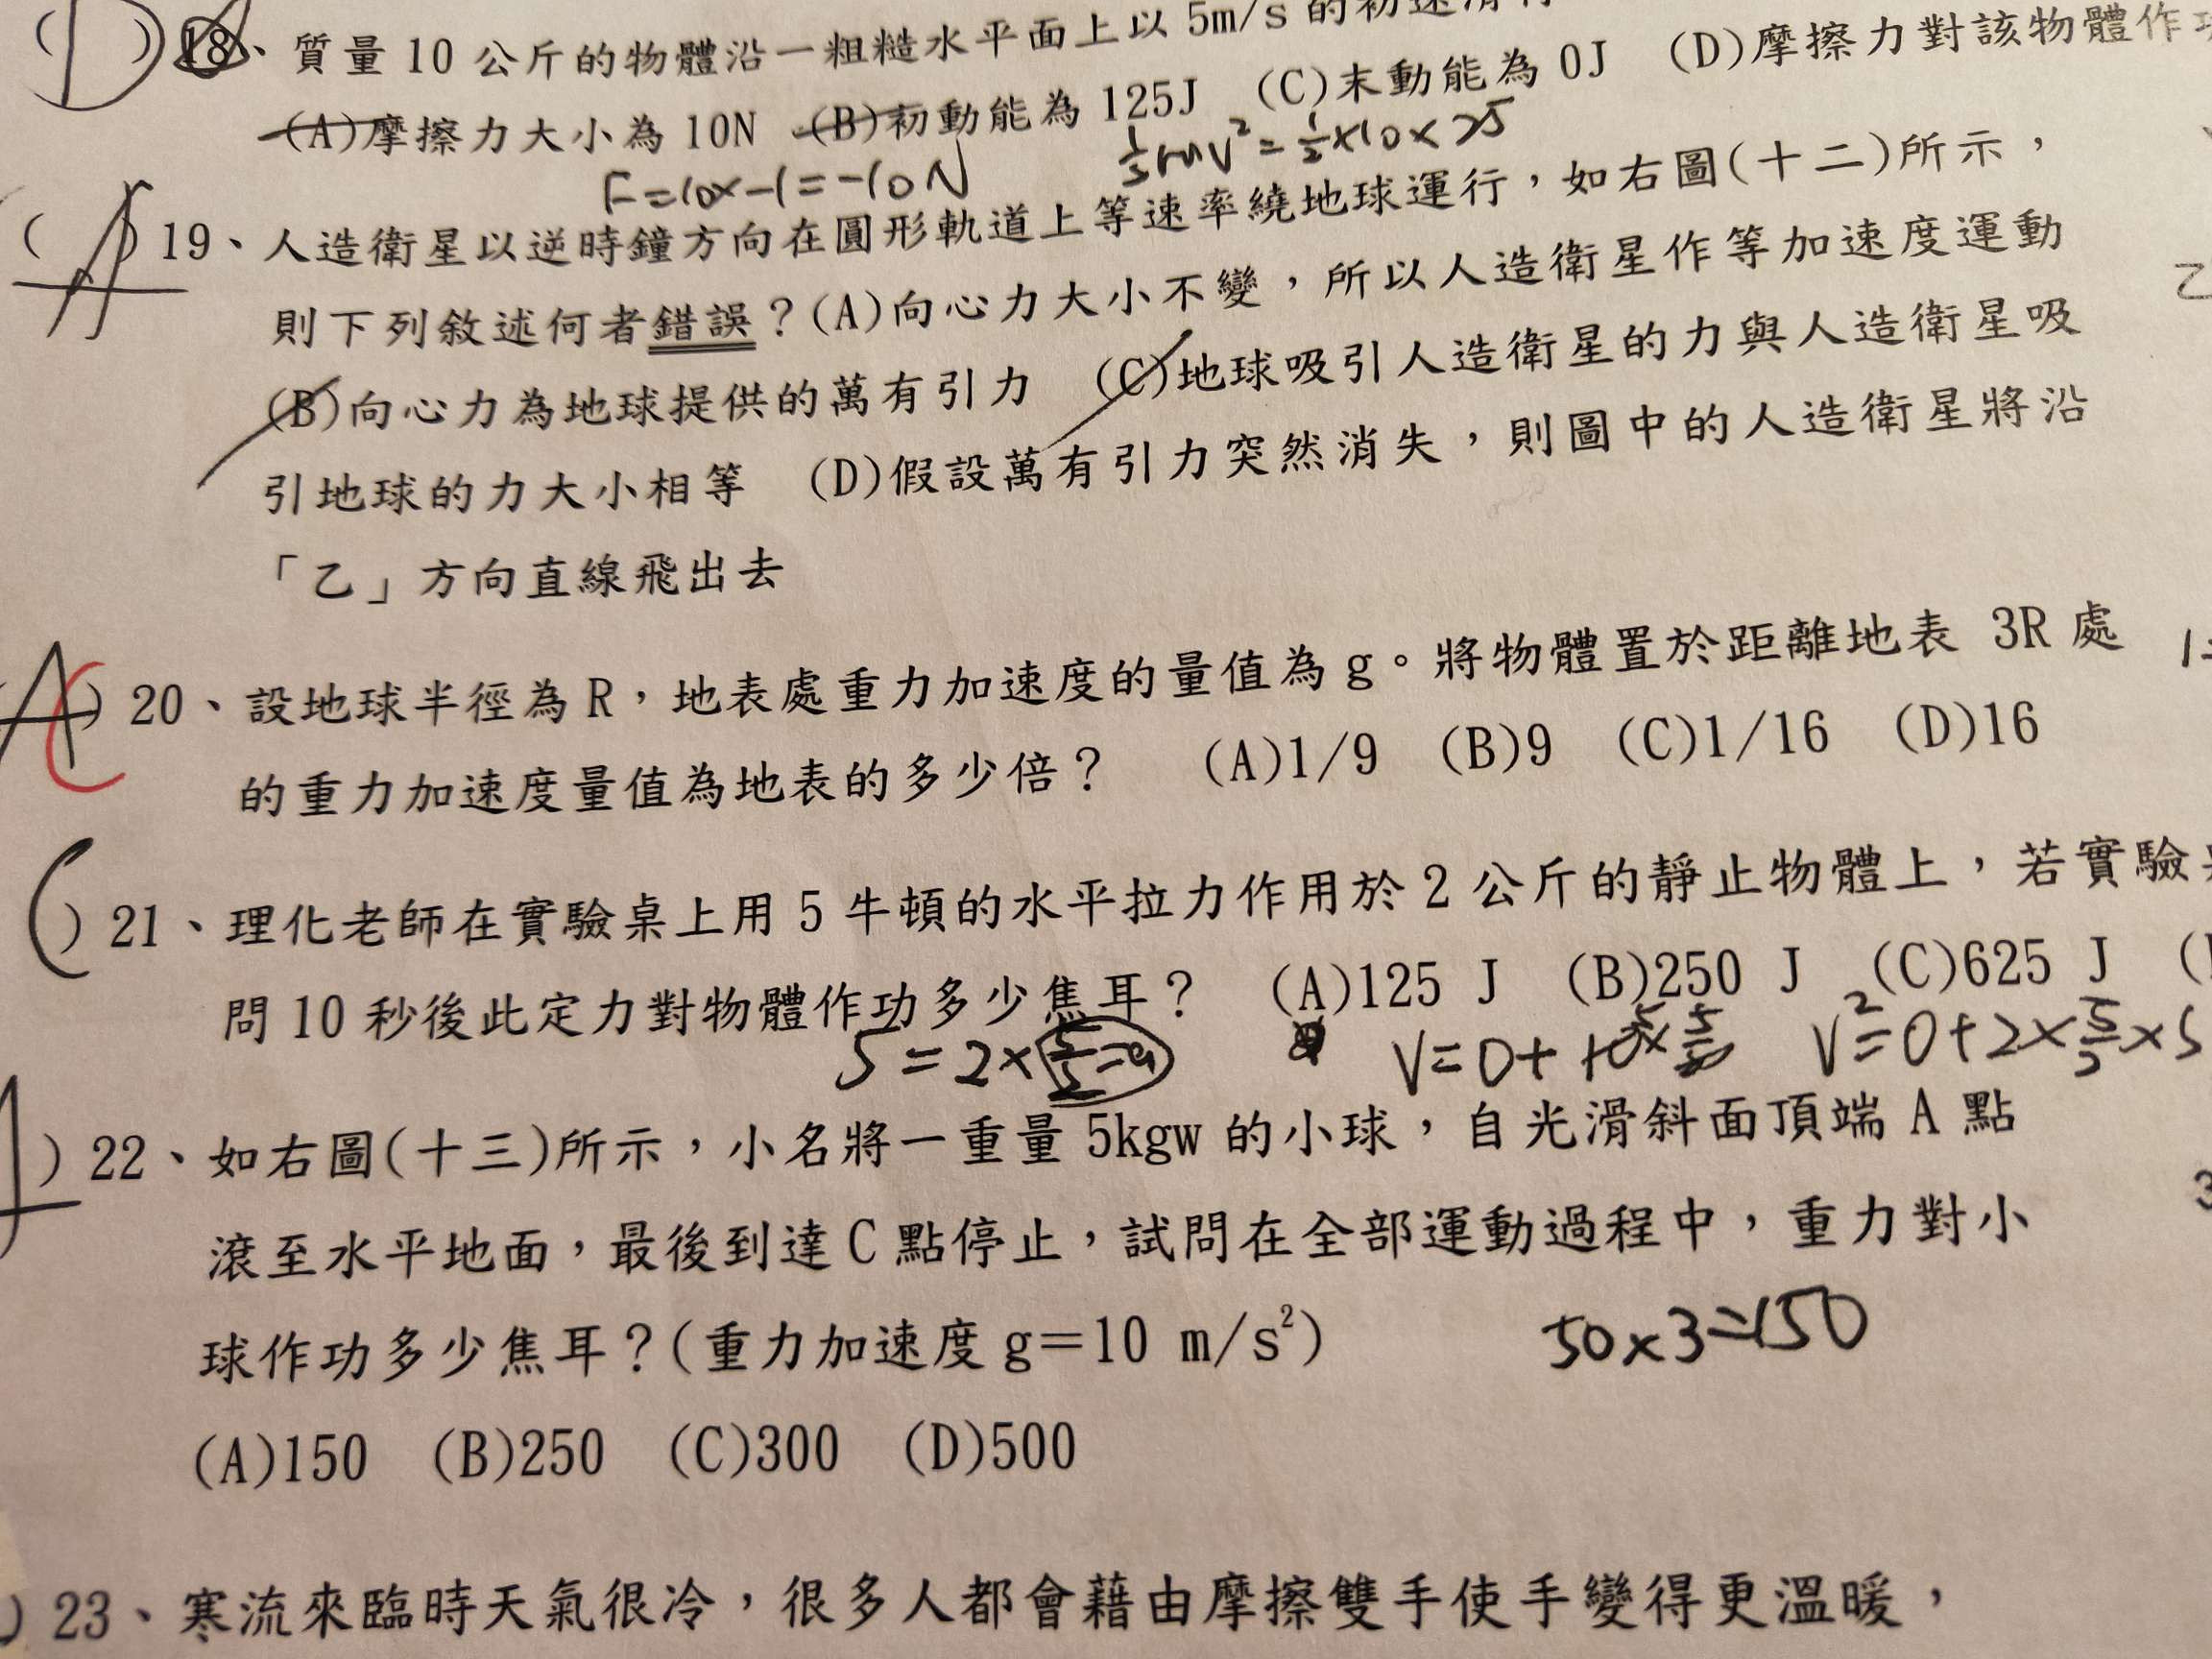 (D)18、質量 10 公斤的物體沿一粗糙水平面上以 5m/s 的初速滑
(A)摩擦力大小為 10N (B)初動能為 125J (C)末動能為 0J (D)摩擦力對該物體作
F=10x-1=-10N ½mv²=½×10×25
(A)19、人造衛星以逆時鐘方向在圓形軌道上等速率繞地球運行，如右圖(十二)所示，
則下列敘述何者錯誤？(A)向心力大小不變，所以人造衛星作等加速度運動
(B)向心力為地球提供的萬有引力 (C)地球吸引人造衛星的力與人造衛星吸
引地球的力大小相等 (D)假設萬有引力突然消失，則圖中的人造衛星將沿
「乙」方向直線飛出去
乙
A C )20、設地球半徑為 R，地表處重力加速度的量值為 g。將物體置於距離地表 3R 處
的重力加速度量值為地表的多少倍？ (A)1/9 (B)9 (C)1/16 (D)16
(C)21、理化老師在實驗桌上用 5 牛頓的水平拉力作用於 2 公斤的靜止物體上，若實驗
問 10 秒後此定力對物體作功多少焦耳？ (A)125 J (B)250 J (C)625 J (
5=2×5/2=a V=0+10× V²=0+2×5/2×5
A )22、如右圖(十三)所示，小名將一重量 5kgw 的小球，自光滑斜面頂端 A 點
滾至水平地面，最後到達 C 點停止，試問在全部運動過程中，重力對小
球作功多少焦耳？(重力加速度 g=10 m/s²)
50×3=150
(A)150 (B)250 (C)300 (D)500
)23、寒流來臨時天氣很冷，很多人都會藉由摩擦雙手使手變得更溫暖，